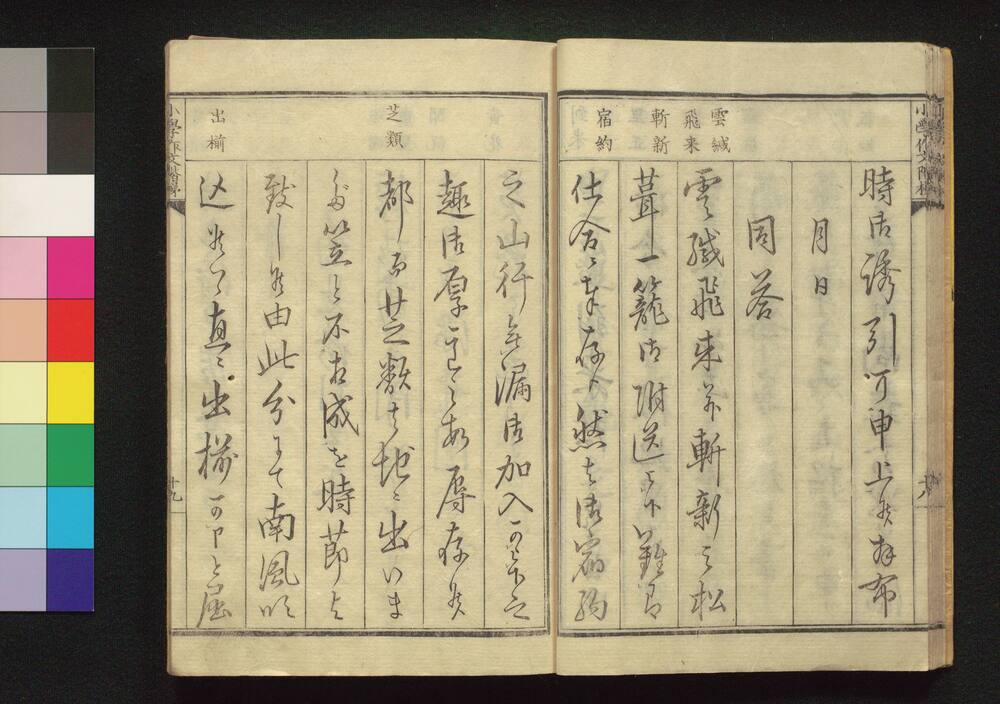 時御誘引可申上候拝布
月日
同答
雲緘
飛来
斬新
宿約
雲緘飛来并斬新之松
茸一籠御附送被下難有
仕合ニ奉存候然者御宿約
之山行無漏御加入可被下之
趣御厚意之段辱存候
芝類
都而芝類者地ニ出いま
た笠と不相成を時節と
致し候由此分にて南風吹
出揃
込候ハヽ直ニ出揃可申と屈
小學作文階梯
十九
小學作文階梯
十八